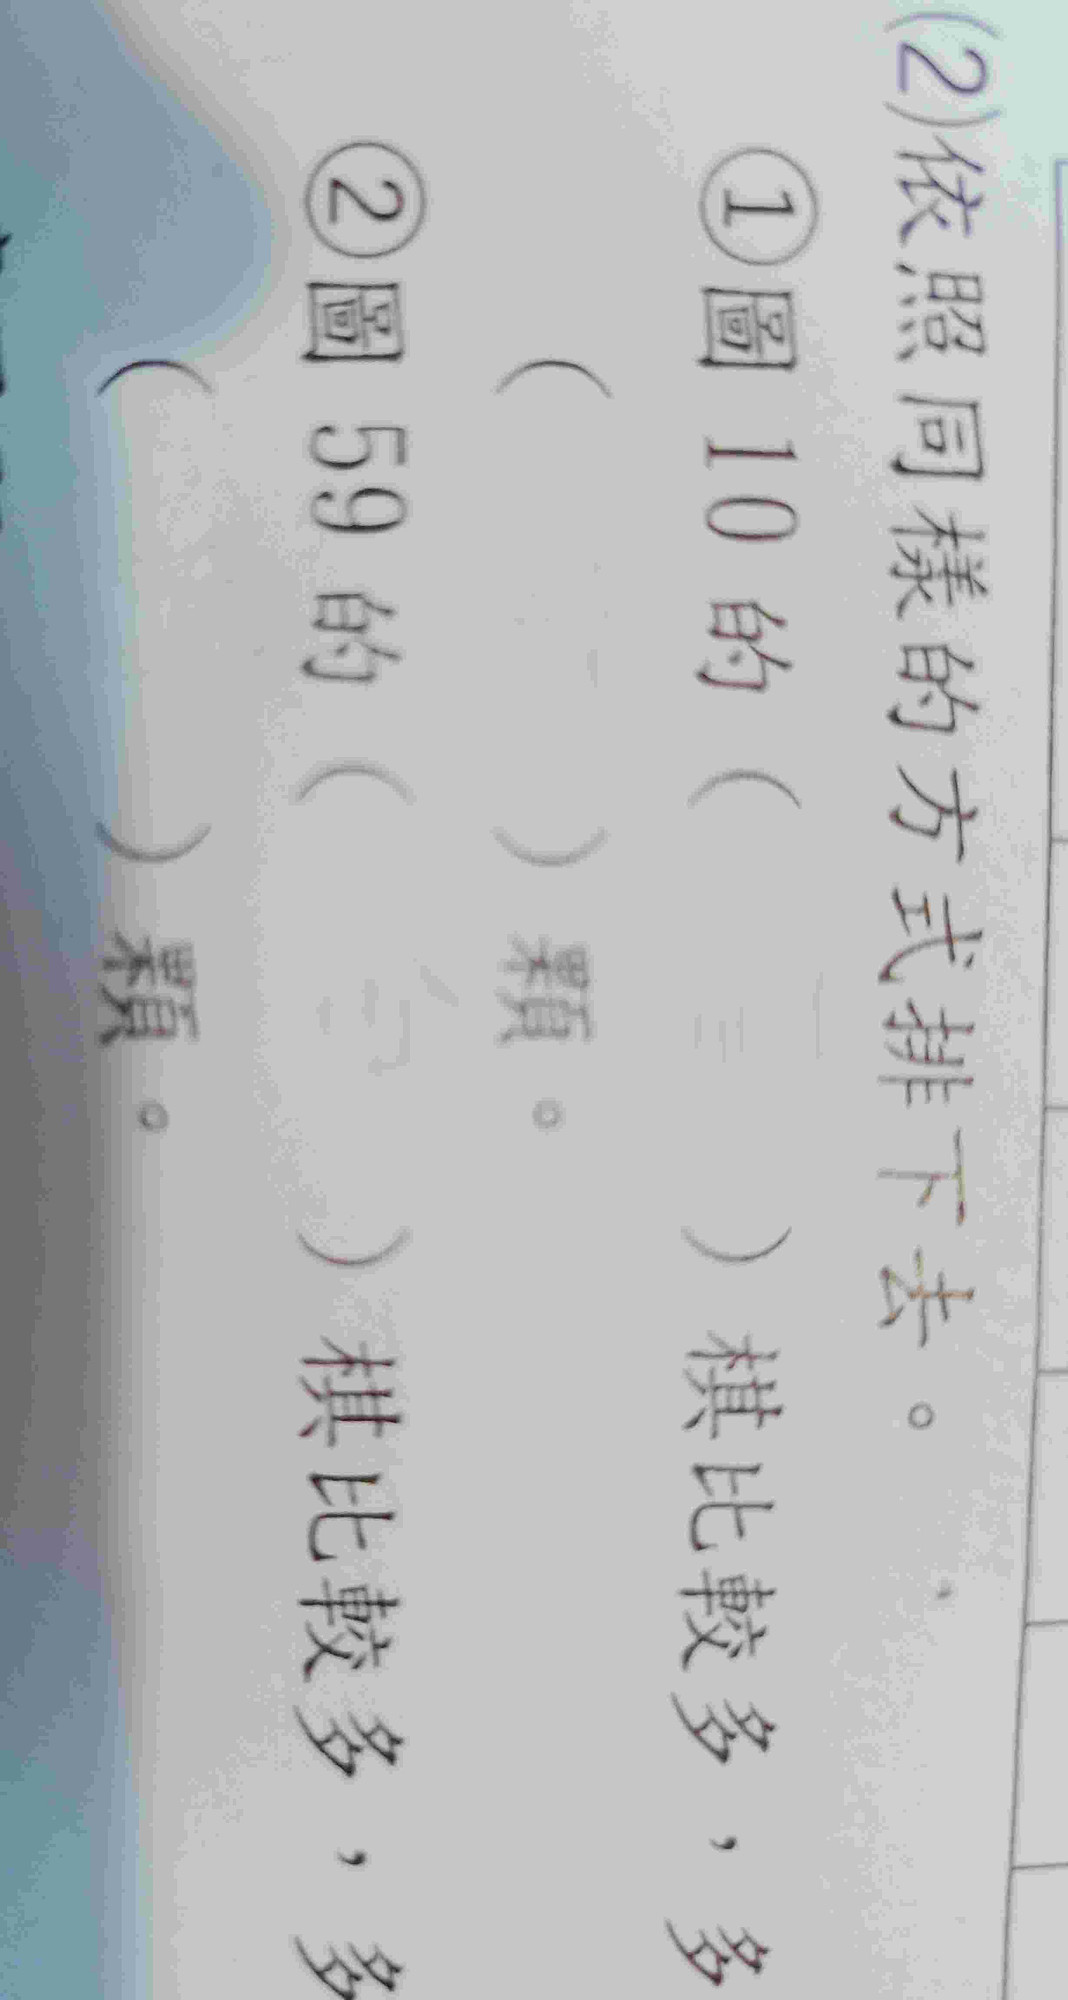 (2)依照同樣的方式排下去。
①圖 10 的 (　　) 棋比較多，多
(　　) 顆。
②圖 59 的 (　　) 棋比較多，多
(　　) 顆。